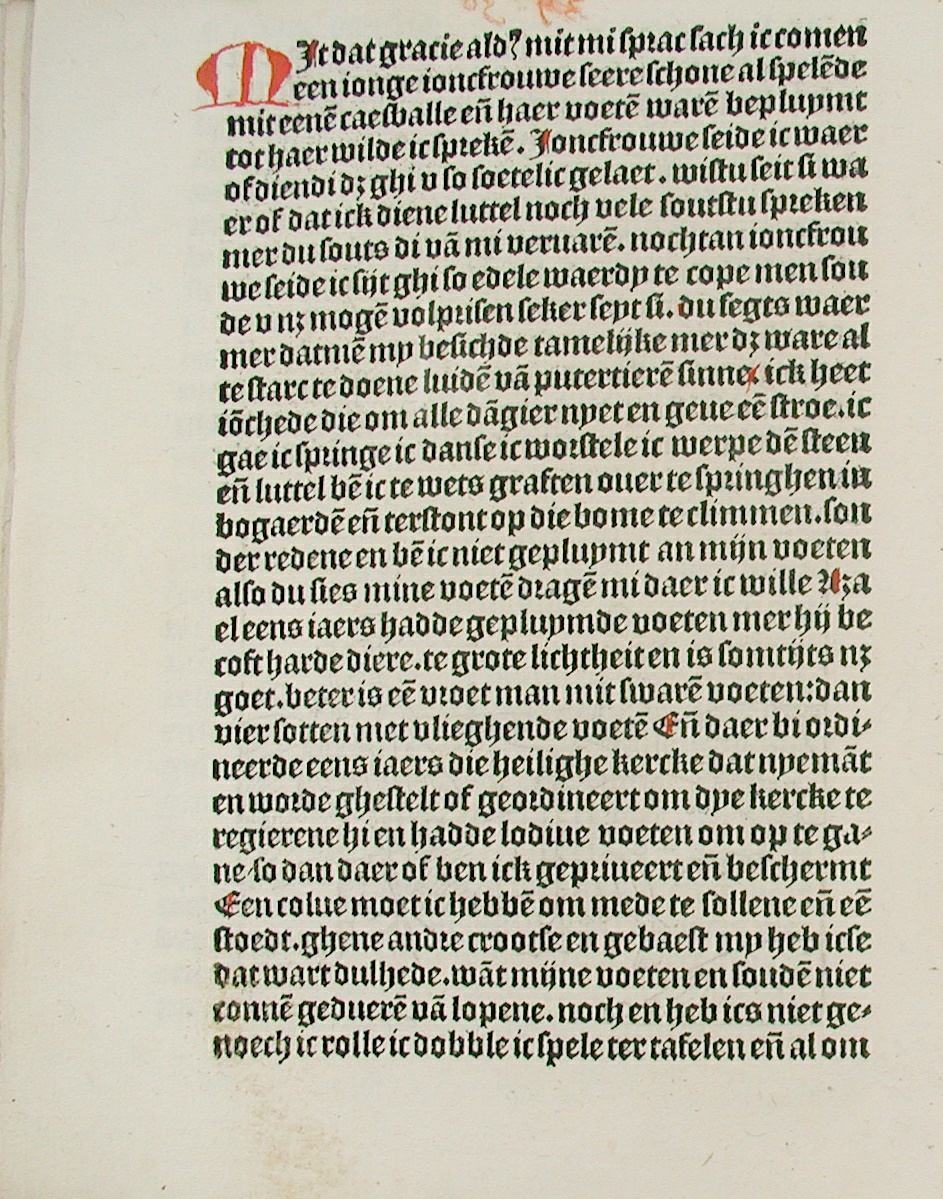 MJt dat gracie aldꝰ mit mi sprac sach ic comen
een ionge ioncfrouwe seere schone al spelēde
mit eenē caesballe eñ haer voetē warē bepluymt
tot haer wilde ic sprekē. Joncfrouwe seide ic waer
of diendi dꝫ ghi v so soetelic gelaet. wistu seit si wa
er of dat ick diene luttel noch vele soutstu spreken
mer du souts di vā mi veruarē. nochtan ioncfrou
we seide ic sijt ghi so edele waerdy te cope men sou
de v nꝫ mogē volprisen seker seyt si. du segts waer
mer datmē my besichde tamelijke mer dꝫ ware al
te starc te doene luidē vā putertierē sinnen ick heet
iōchede die om alle dāgier nyet en geue eē stroe. ic
gae ic springe ic danse ic worstele ic werpe dē steen
eñ luttel bē ic te wets graften ouer te springhen in
bogaerdē eñ terstont op die bome te climmen. son
der redene en bē ic niet gepluymt an mijn voeten
also du sies mine voetē dragē mi daer ic wille Aza
el eens iaers hadde gepluymde voeten mer hij be
coft harde diere. te grote lichtheit en is somtijts nꝫ
goet. beter is eē vroet man mit swarē voeten: dan
vier sotten met vlieghende voetē Eñ daer bi ordi-
neerde eens iaers die heilighe kercke dat nyemāt
en worde ghestelt of geordineert om dye kercke te
regierene hi en hadde lodiue voeten om op te ga-
ne so dan daer of ben ick gepriueert eñ beschermt
Een colue moet ic hebbē om mede te sollene eñ eē
stoedt. ghene andre crootse en gebaest my heb icse
dat wart dulhede. wāt mijne voeten en soudē niet
connē geduerē vā lopene. noch en heb ics niet ge-
noech ic rolle ic dobble ic spele ter tafelen eñ al om